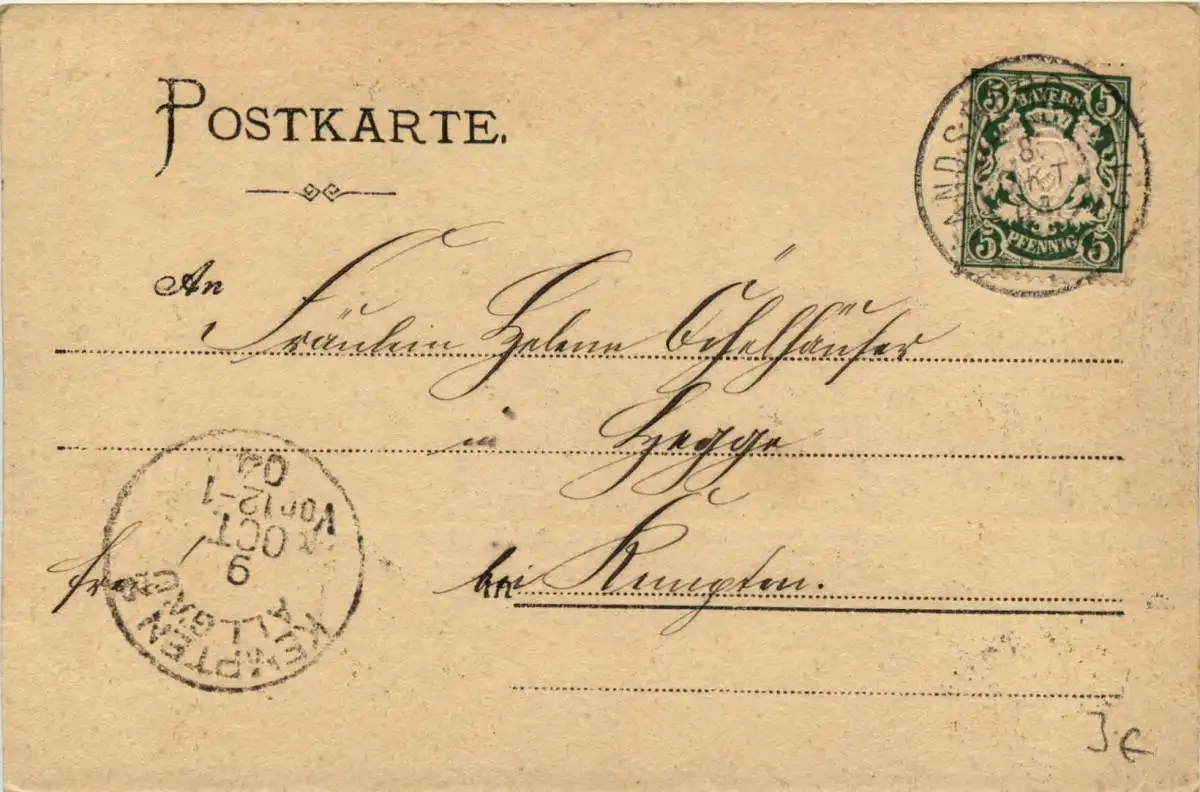 POSTKARTE.
5 BAYERN 5
8.
OKT
5 PFENNIG 5
An
Fräulein Helene Ochelhäuser
in Hegge
bei Kempten.
KEMPTEN
ALLGÄU
9
OCT
Vor 12-1
04
3 €